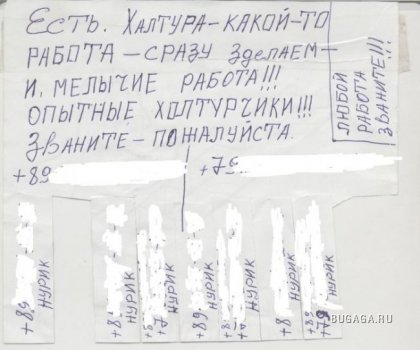 Есть. Халтура-какой-то
работа-сразу зделаем-
и. мелычие работа!!!
опытные холтурчики!!!
званите-пожалуйста.
любой
работа
званите!!!
+89
+79
+89 нурик
+8 нурик
+8 +7 нурик
+89 нурик
+8 + нурик
+8 нурик
+89 +79 нурик
BUGAGA.RU